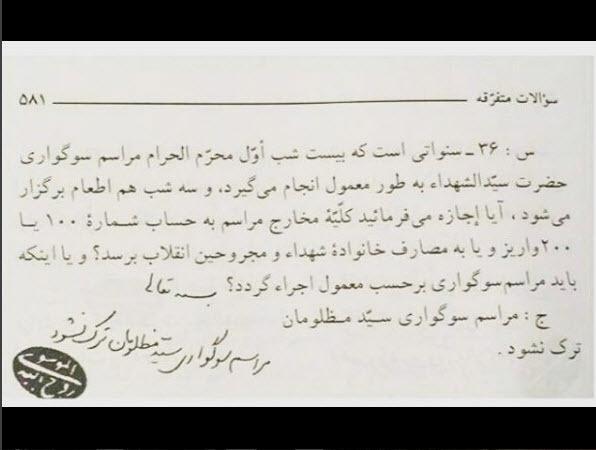 سؤالات متفرّقه ۵۸۱
س : ۳۶ ـ سنواتی است که بیست شب أوّل محرّم الحرام مراسم سوگواری
حضرت سیّدالشهداء به طور معمول انجام می‌گیرد، و سه شب هم اطعام برگزار
می‌شود ، آیا إجازه می‌فرمائید کلّیّهٔ مخارج مراسم به حساب شمارهٔ ۱۰۰ یا
۲۰۰ واریز و یا به مصارف خانوادهٔ شهداء و مجروحین انقلاب برسد؟ و یا اینکه
باید مراسم سوگواری برحسب معمول اجراء گردد؟
بسمه تعالی
ج : مراسم سوگواری سیّد مظلومان
ترک نشود .
مراسم سوگواری سیّد مظلومان ترک نشود
الموسوی
روح الله